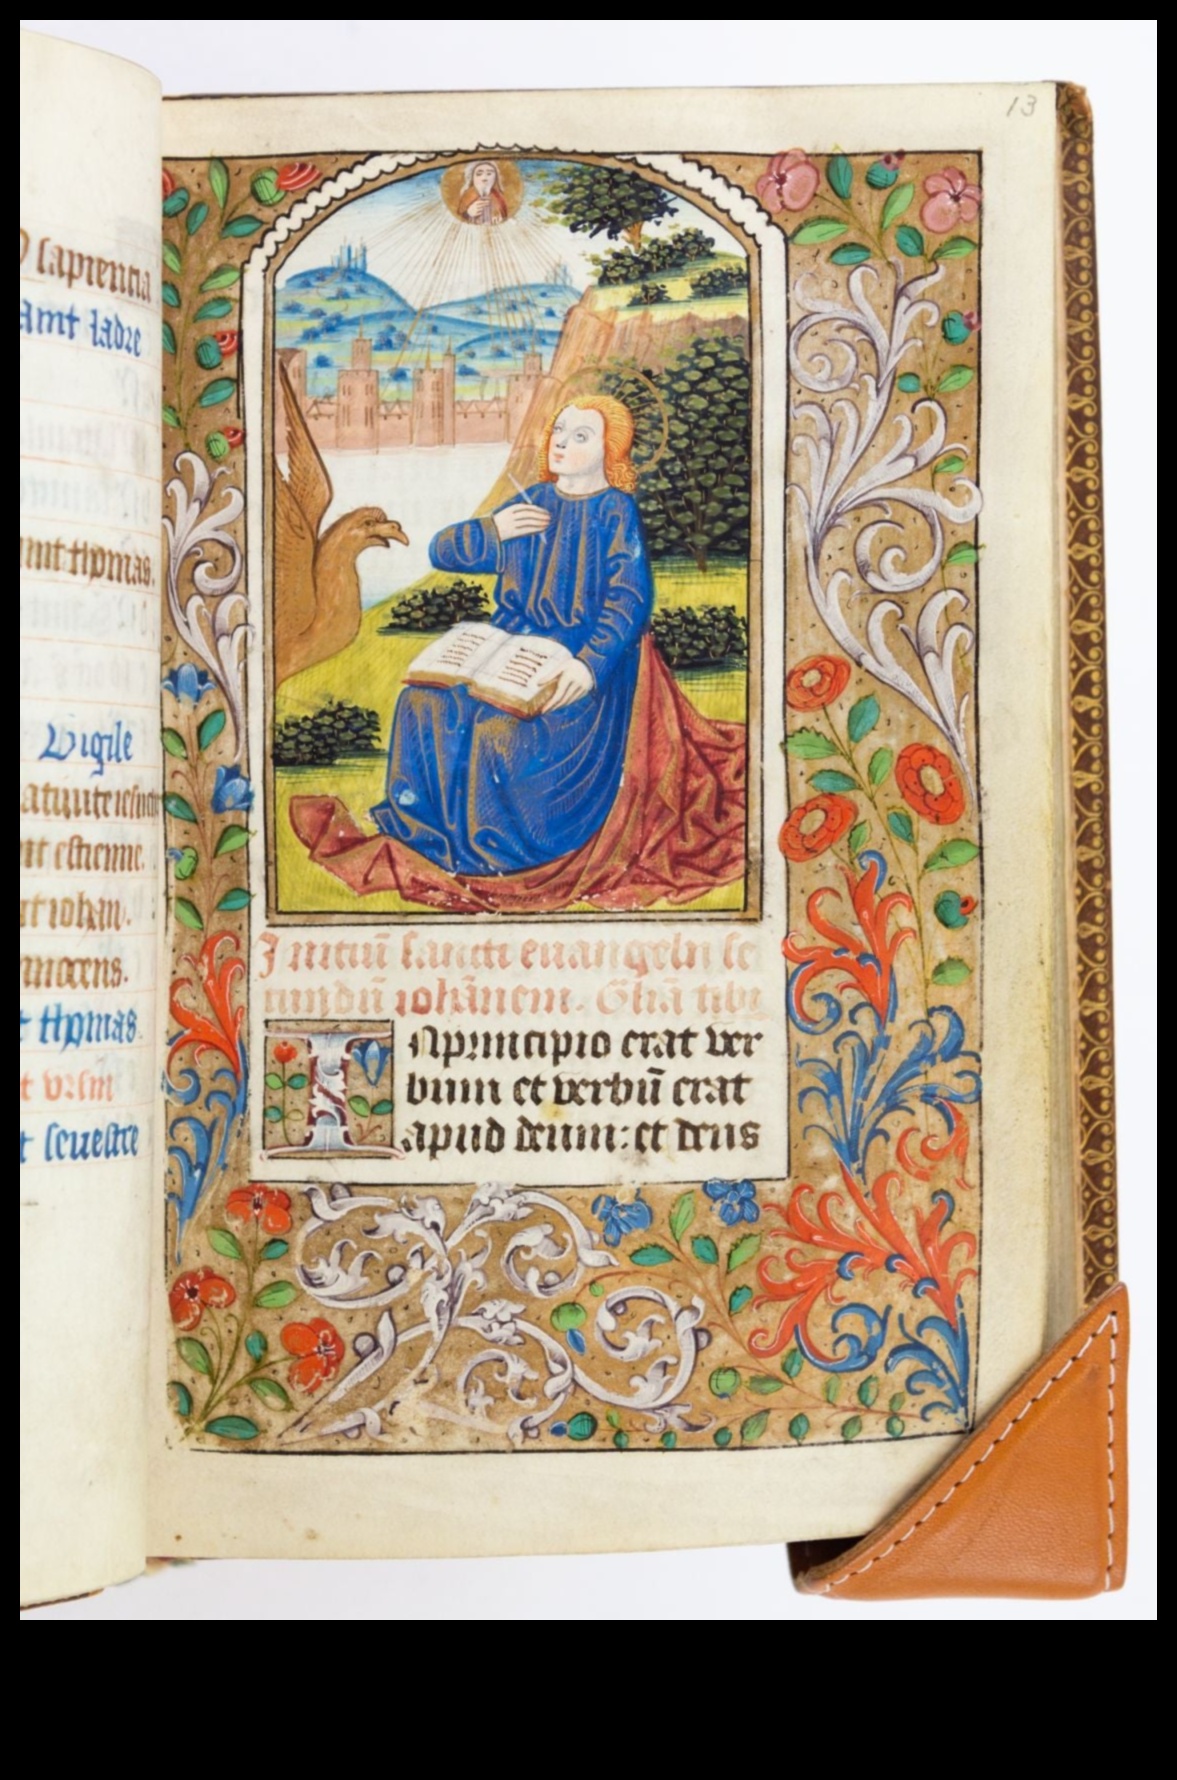 sapiencia
amt ladre
amt thomas.
Vigile
natiuite iesucr
nt estienne.
nt iohan.
innocens.
t thomas.
t vrsin
t seuestre
13
Iniciū sancti euangelii se
cundū iohānem. Glīa tibi
In principio erat ver
bum et verbū erat
apud deum: et deus